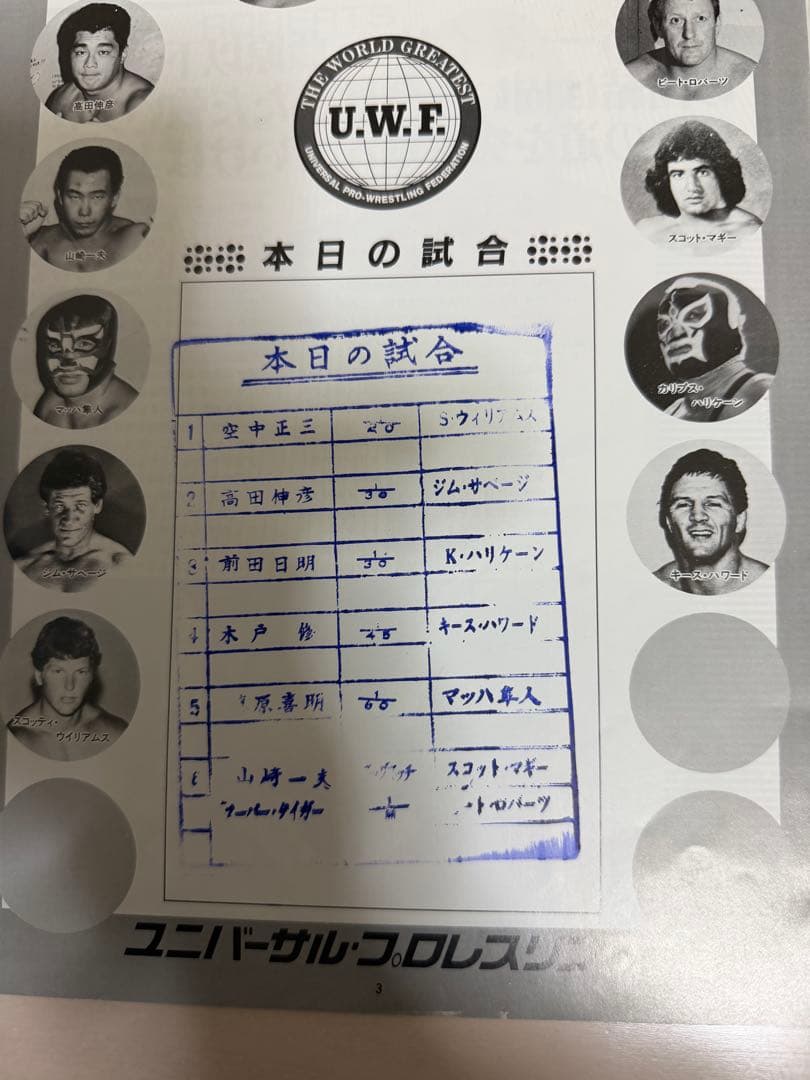 高田伸彦
ピート・ロバーツ
THE WORLD GREATEST
U.W.F.
UNIVERSAL PRO-WRESTLING FEDERATION
山崎一夫
スコット・マギー
本日の試合
マッハ隼人
カリプス・
ハリケーン
ジム・サベージ
キース・ハワード
スコッティ・
ウイリアムス
本日の試合
1 空中正三 1/20 S・ウィリアムス
2 高田伸彦 1/30 ジム・サベージ
3 前田日明 1/30 K・ハリケーン
4 木戸修 1/45 キース・ハワード
5 原喜明 1/60 マッハ隼人
6 山崎一夫 マッチ スコット・マギー
ーパー・タイガー ト・ロバーツ
ユニバーサル・プロレスリン
3